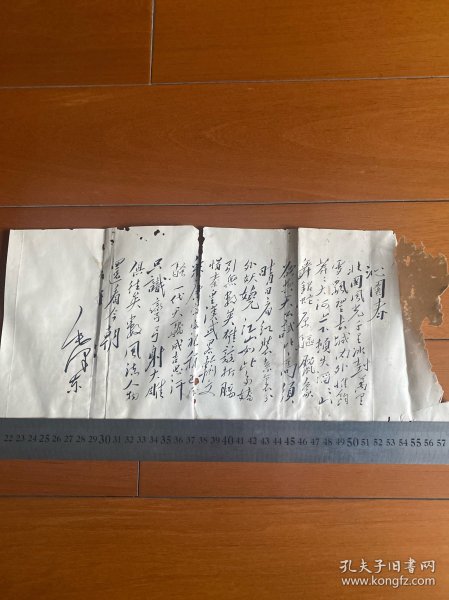 沁园春
北国风光千里冰封万里
雪飘望长城内外惟余
莽莽大河上下顿失滔滔山
舞银蛇原驰蜡象
欲与天公试比高须
晴日看红装素裹分
外妖娆江山如此多娇
引无数英雄竞折腰
惜秦皇汉武略输文
宗宋祖稍逊风
骚一代天骄成吉思汗
只识弯弓射大雕
俱往矣数风流人物
还看今朝
毛泽东
22 23 24 25 26 27 28 29 30 31 32 33 34 35 36 37 38 39 40 41 42 43 44 45 46 47 48 49 50 51 52 53 54 55 56 57
孔夫子旧书网
www.kongfz.com